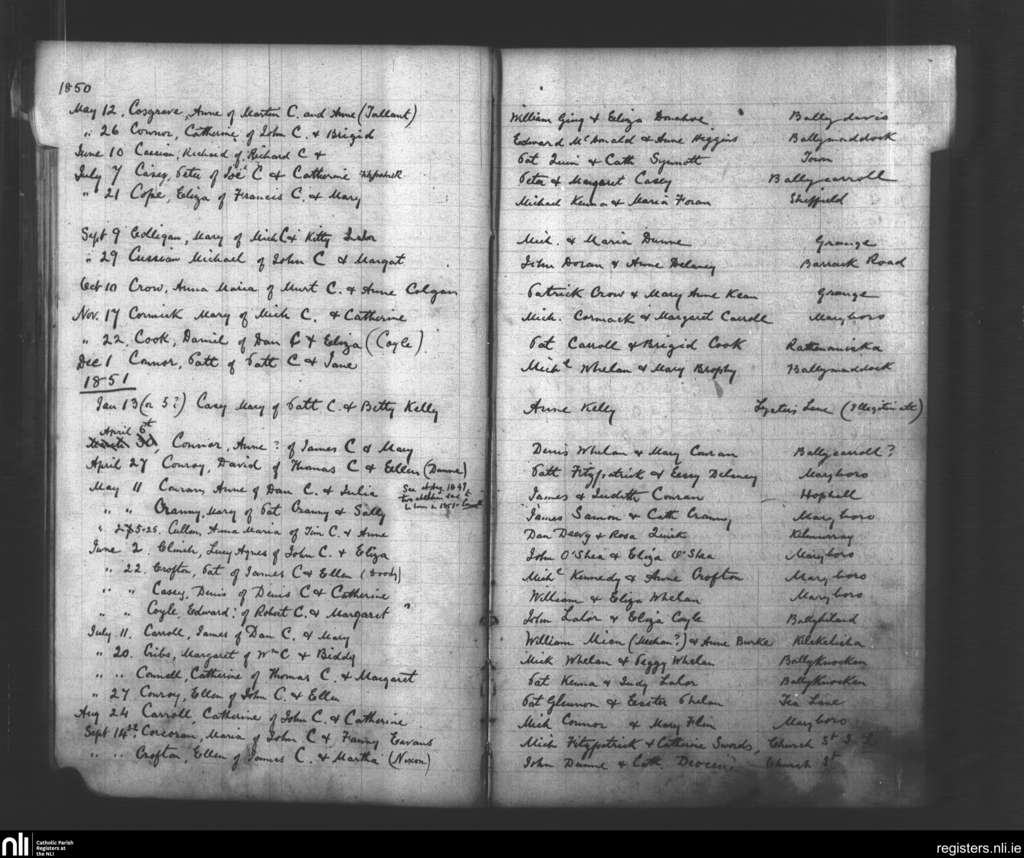 1850
May 12. Cosgrave, Anne of Martin C. and Anne (Tallant) William Ging & Eliza Donahoe Ballydavis
" 26 Connor, Catherine of John C. & Brigid Edward McDonald & Anne Higgins Ballymaddock
June 10 Cassian, Richard of Richard C & Pat Quin & Cath Synnott Town
July 7 Casey, Peter of Joe C & Catherine Fitzpatrick Peter & Margaret Casey Ballycarroll
" 21 Cope, Eliza of Francis C. & Mary Michael Kenna & Maria Foran Sheffield
Sept 9 Colligan, Mary of Mich C & Kitty Lalor Mich. & Maria Dunne Grange
" 29 Cussian Michael of John C & Margat John Doran & Anne Delaney Barrack Road
Oct 10 Crow, Anna Maria of Murt C. & Anne Colgan Patrick Crow & Mary Anne Kean Grange
Nov. 17 Cormick Mary of Mich C. & Catherine Mich. Cormack & Margaret Carroll Maryboro
" 22, Cook, Daniel of Dan C & Eliza (Coyle) Pat Carroll & Brigid Cook Rathnamiska
Dec 1 Connor, Patt of Patt C & Jane Michl Whelan & Mary Brophy Ballymaddock
1851
Jan 13 (or 5?) Casey Mary of Patt C. & Betty Kelly Anne Kelly Lyster's Lane (Illegitimate)
April 6th
Connor, Anne? of James C & May Denis Whelan & Mary Curran Ballycarroll?
April 27 Conroy, David of Thomas C & Ellen (Dunne) Patt Fitzpatrick & Essy Delaney Maryboro
May 11 Conran, Anne of Dan C. & Julia See Aug 1849 James & Judith Conran Hophall
" " Cranny, Mary of Pat Cranny & Sally James Samon & Cath Cranny Maryboro
" 25. Cullen, Anna Maria of Tim C. & Anne Dan Deevy & Rosa Quirk Kilmurray
June 2. Clinch, Lucy Agnes of John C. & Eliza John O'Shea & Eliza O'Shea Maryboro
" 22. Crofton, Pat of James C & Ellen (Doody) Michl Kennedy & Anne Crofton Maryboro
" " Casey, Denis of Denis C & Catherine William & Eliza Whelan Maryboro
" " Coyle, Edward: of Robert C. & Margaret " John Lalor & Eliza Coyle
July 11. Carroll, James of Dan C. & Mary William Mian (Meehan?) & Anne Burke
" 20. Gibs, Margaret of Wm C & Biddy Mick Whelan & Peggy Whelan Ballyknocken
" " Connell, Catherine of Thomas C. & Margaret Pat Kenna & Judy Lalor Ballyknocken
" 27 Conroy, Ellen of John C. & Ellen Pat Glennon & Easter Phelan Tea Lane
Aug 24 Carroll, Catherine of John C. & Catherine Mich Connor & Mary Flin Maryboro
Sept 14th. Corcoran, Maria of John C & Fanny Eavans Mich Fitzpatrick & Catherine Swords, Church St
" " Crofton, Ellen of James C. & Martha (Nixon) John Dunne & Cath Church St
nli
Catholic Parish
Registers at
the NLI
registers.nli.ie